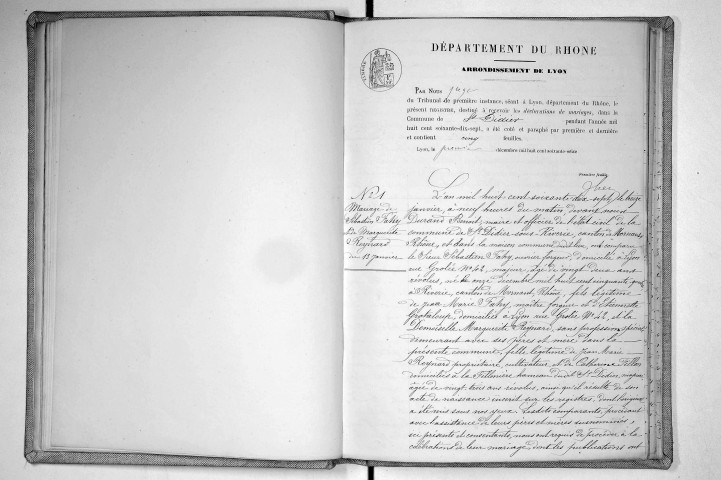 DÉPARTEMENT DU RHONE
ARRONDISSEMENT DE LYON
PAR NOUS Juge
du Tribunal de première instance, séant à Lyon, département du Rhône, le
présent REGISTRE, destiné à recevoir les déclarations de mariages, dans la
Commune de St Didier pendant l'année mil
huit cent soixante-dix-sept, a été coté et paraphé par première et dernière
et contient cinq feuilles.
Lyon, le premier décembre mil huit cent soixante-seize
Première feuille
N° 1
Mariage de
Sébastien Fahy
et de Marguerite
Reynard
du 13 janvier
L'an mil huit cent soixante dix sept, le treize
janvier, à neuf heures du matin, devant nous
Durand Benoît, maire et officier de l'état civil de la
commune de St Didier-sous-Riverie, canton de Mornant
Rhône, et dans la maison commune dudit lieu, ont comparu
le Sieur Sébastien Fahy, ouvrier forgeur, domicilié à Lyon
rue Grolée N° 42, majeur, âgé de vingt deux ans
révolus, né le onze décembre mil huit cent cinquante quatre
à Riverie, canton de Mornant, Rhône, fils légitime
de Marie Fahy, maître forgeur et d'Etiennette
domiciliés à Lyon rue Grolée N° 42, et la
Demoiselle Marguerite Reynard, sans profession
demeurant avec ses pères et mère dans la
présente commune, fille légitime de Jean Marie
Reynard propriétaire, cultivateur, et de Catherine
domiciliés à la hameau dudit St Didier, majeure
âgée de vingt trois ans révolus, ainsi qu'il résulte de son
acte de naissance inscrit sur les registres
a été mis sous nos yeux. Lesdits comparants, procédant
avec l'assistance de leurs pères et mères susnommés,
ici présents et consentants, nous ont requis de procéder à la
célébration de leur mariage, dont les publications ont